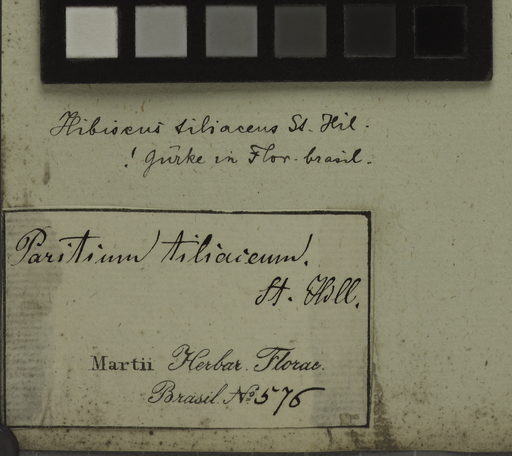 Hibiscus tiliaceus St. Hil.
! Gürke in Flor. brasil.
Paritium tiliaceum.
St. Hill.
Martii Herbar. Florae.
Brasil. No. 576